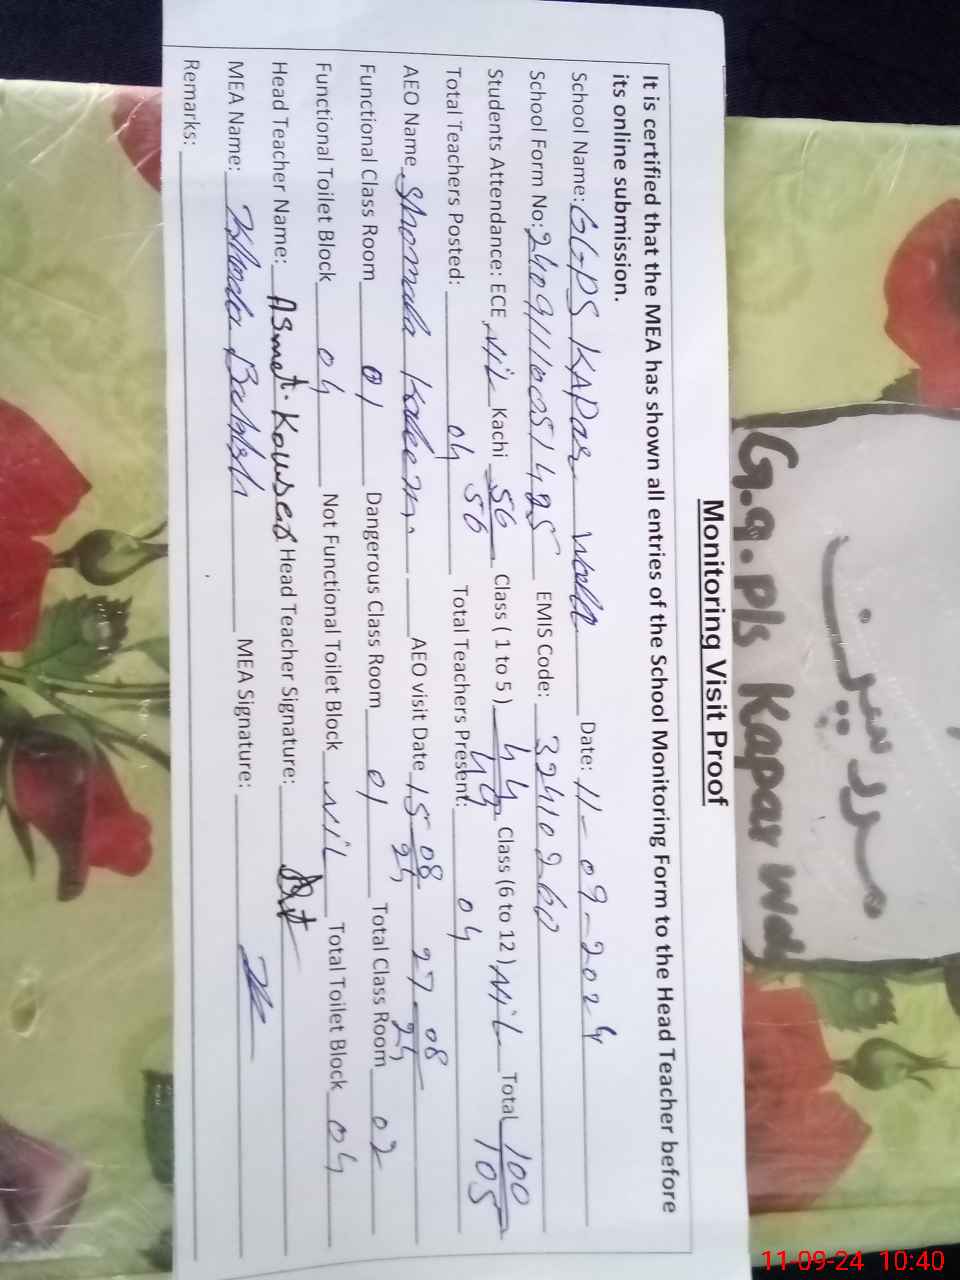 مردسیر
G.g.pls Kapar wd
Monitoring Visit Proof
It is certified that the MEA has shown all entries of the School Monitoring Form to the Head Teacher before
its online submission.
School Name: GGPS KAPar Date: 11-09-2024
School Form No: EMIS Code:
Students Attendance: ECE Nil Kachi 56/56 Class ( 1 to 5 ) 44/49 Class (6 to 12) Nil Total 100/105
Total Teachers Posted: 04 Total Teachers Present: 04
AEO Name Kaleem AEO visit Date 15 08/24 27 08/24
Functional Class Room 01 Dangerous Class Room 01 Total Class Room 02
Functional Toilet Block 04 Not Functional Toilet Block Nil Total Toilet Block 04
Head Teacher Name: Asmat Kousar Head Teacher Signature:
MEA Name: Bakhsh MEA Signature:
Remarks:
11-09-24 10:40